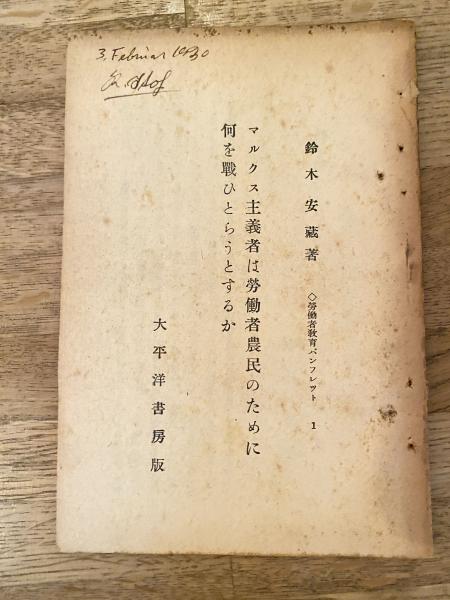 3. Februar 1930
鈴木安藏著
◇勞働者教育パンフレツト 1
マルクス主義者は勞働者農民のために
何を戰ひとらうとするか
大平洋書房版